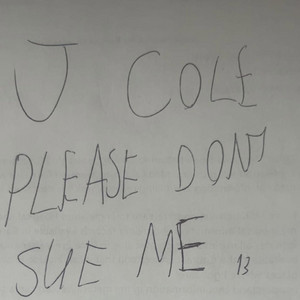 J COLE
PLEASE DONT
SUE ME 13